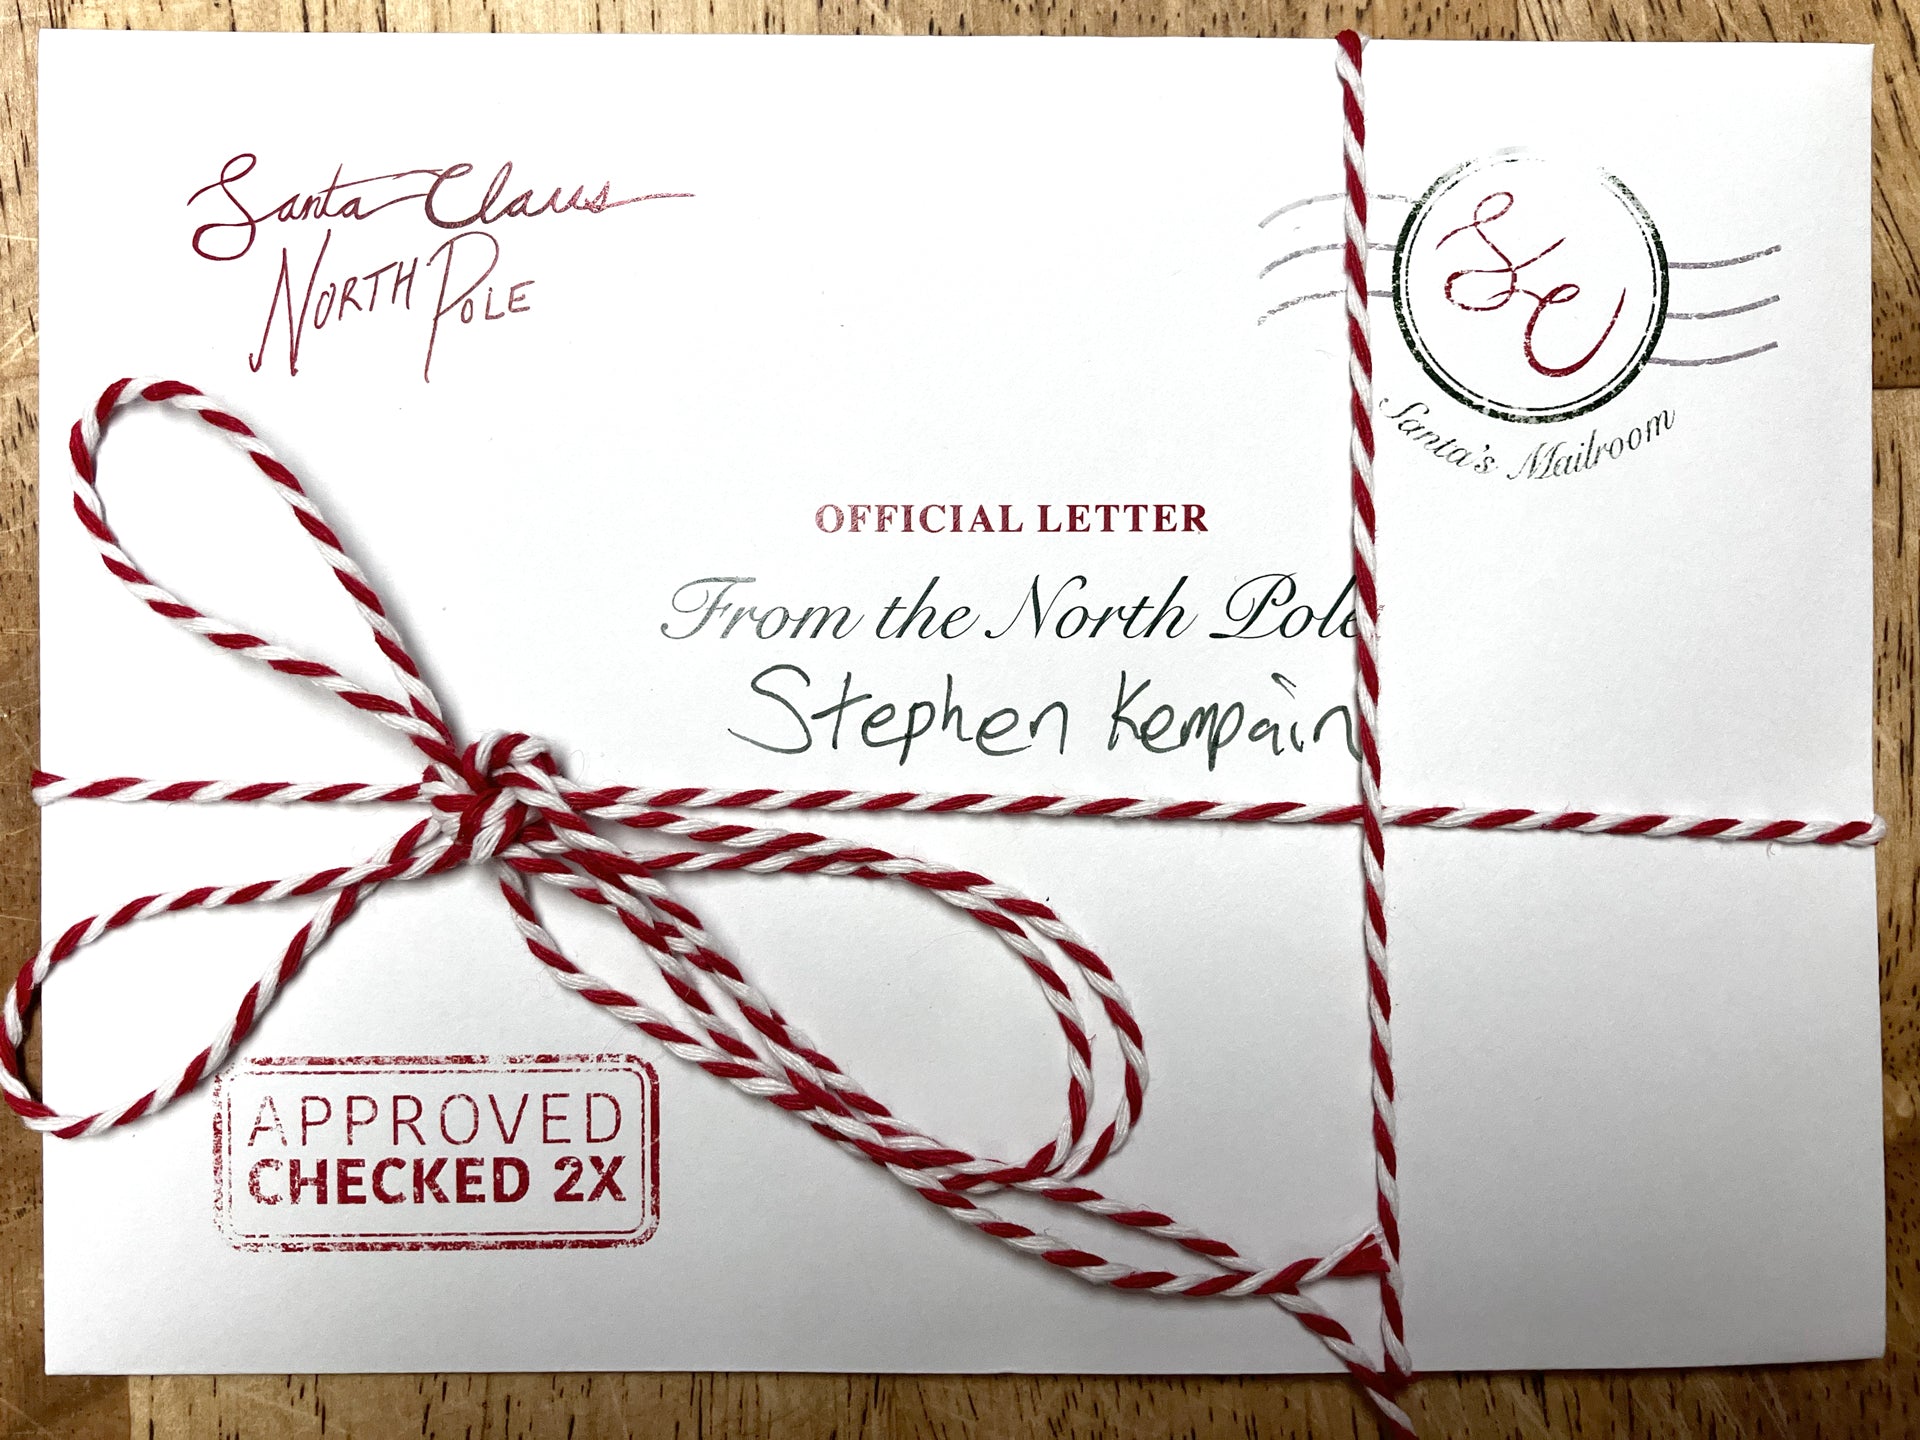 Santa Claus
NORTH POLE
SC
Santa's Mailroom
OFFICIAL LETTER
From the North Pole
Stephen Kempain
APPROVED
CHECKED 2X